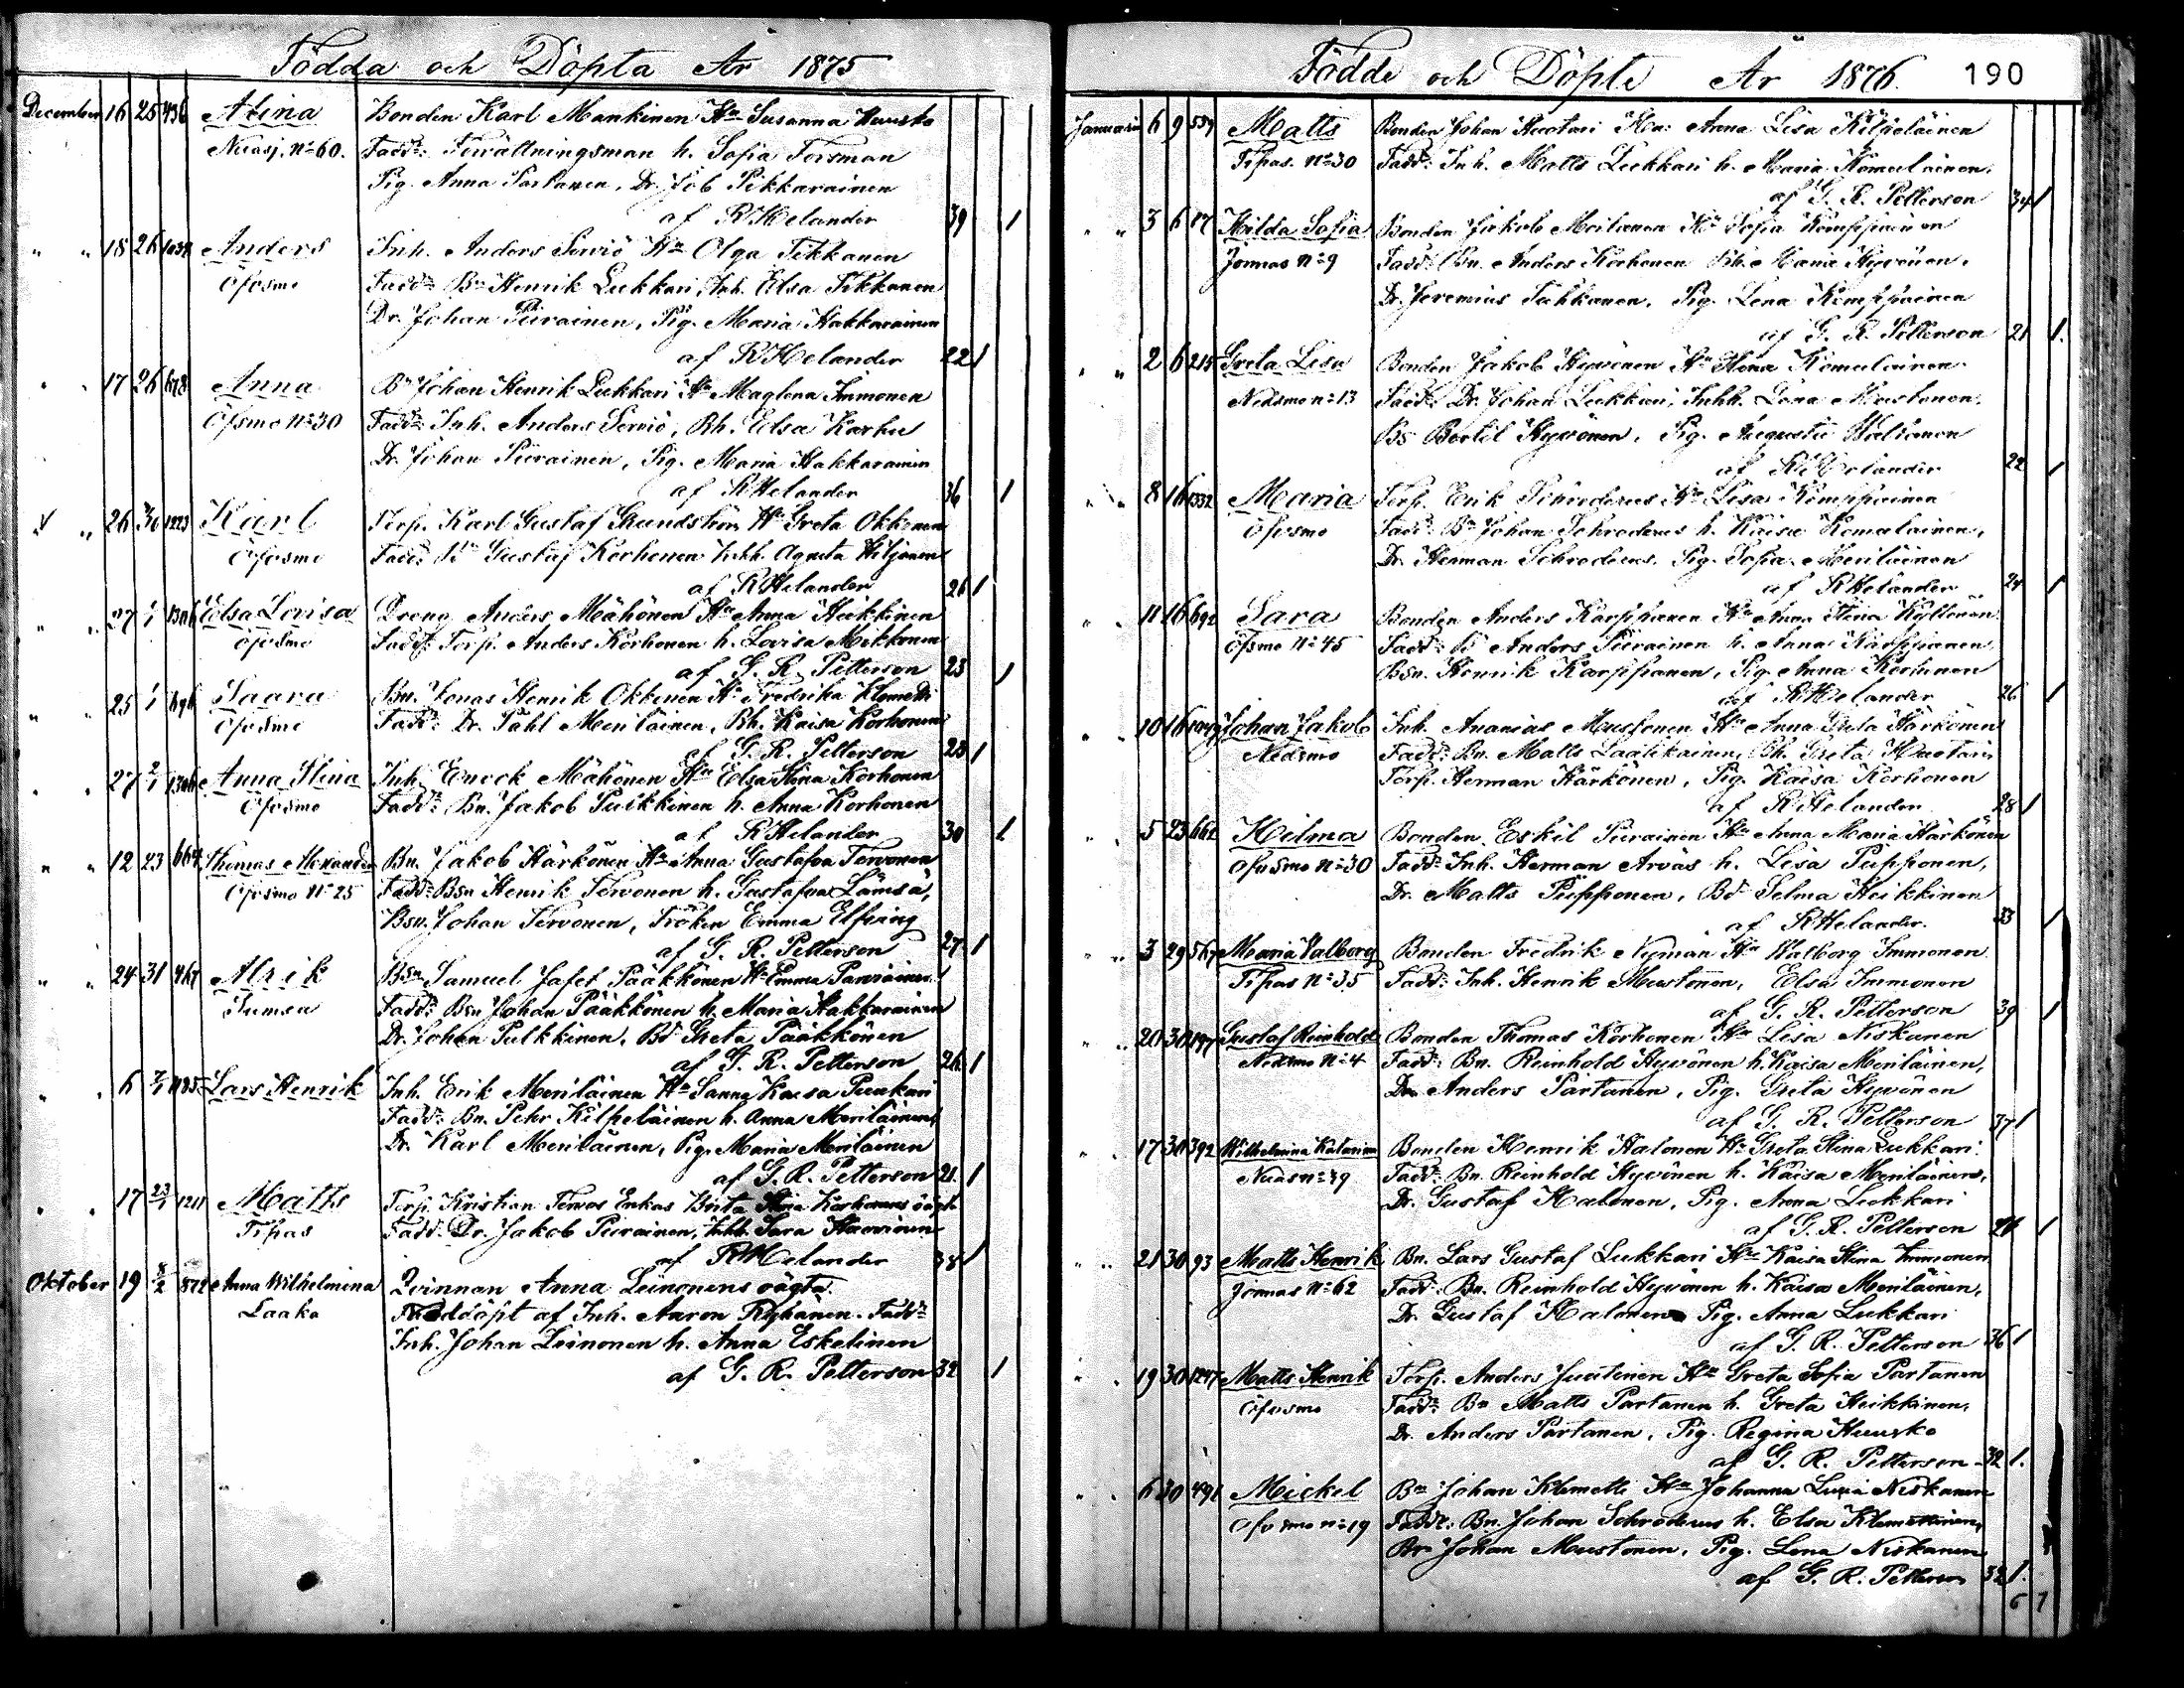 Födda och Döpta År 1875
December 16 25 436 Alina Bonden Karl Mankinen Hu Susanna Huusko
Nuasj. No 60. Fadd: Förvaltningsman h. Sofia Forsman
Pig. Anna Partanen, Dr. Job Pikkarainen
af R Helander 39 1
" " 18 26 1038 Anders Inh. Anders Serviö Hu Olga Tikkanen
Öfvsmo Fadd: Bn Henrik Lukkari, Inh. Elsa Tikkanen
Dr. Johan Piirainen, Pig. Maria Hakkarainen
af R Helander 22 1
" " 17 26 678 Anna Bn Johan Henrik Lukkari Hu Maglena Immonen
Öfsmo No 30 Fadd: Inh. Anders Serviö, Bh. Elsa Karhu
Dr. Johan Piirainen, Pig. Maria Hakkarainen
af R Helander 36 1
" " 26 30 1223 Karl Torp. Karl Gustaf Grundström Hu Greta Okkonen
Öfvsmo Fadd: Gustaf Korhonen Inhh. Agneta Hiljanen
af R Helander 26 1
" " 27 1/1 Elsa Lovisa Dreng Anders Mähönen Hu Anna Heikkinen
Öfvsmo Fadd: Torp. Anders Korhonen h. Lovisa Mikkonen
af G. R. Petterson 23 1
" " 25 1/1 696 Saara Bn. Jonas Henrik Okkonen Hu Fredrika Klemetti
Öfvsmo Fadd: Dr. Pahl Meriläinen, Bh. Kaisa Korhonen
af G. R. Petterson 23 1
" " 27 2/1 1306 Anna Stina Inh. Enock Mähönen Hu Elsa Stina Korhonen
Öfvsmo Fadd: Bn. Jakob Pulkkinen h. Anna Korhonen
af R Helander 30 1
" " 12 23 664 Thomas Alexander Bn. Jakob Härkönen Hu Anna Gustafva Tervonen
Öfvsmo No 25 Fadd: Bsn Henrik Tervonen h. Gustafva Lämsä,
Bsn. Johan Tervonen, Fröken Emma Elfving
af G. R. Petterson 27 1
" " 24 31 467 Alrik Bsn Samuel Jafet Pääkkönen Hu Emma
Jumea Fadd: Bsn Johan Pääkkönen h. Maria Hakkarainen
Dr. Johan Pulkkinen, Bd Greta Pääkkönen
af G. R. Petterson 26 1
" " 6 1125 Lars Henrik Inh. Erik Meriläinen Hu Sanna Kaisa Puukari
Fadd: Bn. Pehr Kilpeläinen h. Anna Meriläinen,
Dr. Karl Meriläinen, Pig. Maria Meriläinen
af G. R. Petterson 21. 1
" " 17 23/1 1211 Matts Torp. Kristian Enkas Brita Stina Korhonens oägta
Tipas Fadd: Dr. Jakob Piirainen, Inhh. Sara
af R Helander 38 1
Oktober 19 8/2 872 Anna Wilhelmina Qvinnan Anna Leinonens oägta.
Laaka Nöddöpt af Inh. Aaron Ryhänen. Fadd:
Inh. Johan Leinonen h. Anna Eskelinen
af G. R. Petterson 32 1
Födde och Döpte År 1876. 190
Januarii 6 9 559 Matts Bonden Johan Huotari Hu: Anna Lisa Kilpeläinen
Tipas. No 30 Fadd: Inh. Matts Lukkari h. Maria Komulainen.
af G. R. Petterson 34 1
" " 3 6 87 Hilda Sofia Bonden Jakob Moilanen Hu Sofia Kemppainen
Jormas No 9 Fadd: Bn. Anders Korhonen Bh. Maria Hyvönen.
Dr. Jeremias Tuhkanen, Pig. Lena Kemppainen
af G. R. Petterson 21 1.
" " 2 6 215 Greta Lisa Bonden Jakob Hyvönen Hu Stina Komulainen.
Nedsmo No 13 Fadd: Dr. Johan Lukkari, Inhh. Lena Mustonen.
Bs Bertil Hyvönen, Pig. Augusta Haltunen
af R Helander 22 1
" " 8 16 1332 Maria Torp. Erik Schroderus Hu Lisa Kemppainen
Öfvsmo Fadd: Bn Johan Schroderus h. Kaisa Komulainen,
Dr. Herman Schroderus. Pig. Sofia Meriläinen
af R Helander 24 1
" " 11 16 692 Sara Bonden Anders Karppanen Hu Anna Stina Kyllönen
Öfsmo No 45 Fadd: Anders Piirainen h. Anna Karppanen
Bsn. Henrik Karppanen, Pig. Anna Korhonen
af R Helander 26 1
" " 10 16 Johan Jakob Inh. Ananias Mustonen Hu Anna Greta Härkönen
Nedsmo Fadd: Bn. Matts Laatikainen, Bh. Greta Huotari
Torp. Herman Härkönen, Pig. Kaisa Korhonen
af R Helander 28 1
" " 5 23 662 Hilma Bonden Eskil Piirainen Hu Anna Maria Härkönen
Öfvsmo No 30 Fadd: Inh. Herman Arväs h. Lisa Piipponen,
Dr. Matts Piipponen, Bd Selma Heikkinen
af R Helander. 23 1
" " 3 29 567 Maria Walborg Bonden Fredrik Nyman Hu Walborg Immonen
Tipas No 35 Fadd: Inh. Henrik Mustonen, Elsa Immonen
af G. R. Petterson 39 1
" " 20 30 197 Gustaf Reinhold Bonden Thomas Korhonen Hu Lisa Niskanen
Nedsmo No 4 Fadd: Bn. Reinhold Hyvönen h. Kaisa Meriläinen,
Dr Anders Partanen, Pig. Greta Hyvönen
af G. R. Petterson 37 1
" . 17 30 392 Wilhelmina Katarina Bonden Henrik Halonen Hu Greta Stina Lukkari.
Nuas No 49 Fadd: Bn. Reinhold Hyvönen h. Kaisa Meriläinen,
Dr. Gustaf Halonen, Pig. Anna Lukkari
af G. R. Petterson 24 1
" " 21 30 93 Matts Henrik Bn. Lars Gustaf Lukkari Hu Kaisa Stina Immonen
Jormas No 62 Fadd: Bn. Reinhold Hyvönen h. Kaisa Meriläinen,
Dr. Gustaf Halonen Pig. Anna Lukkari
af G. R. Petterson 36 1
" . 19 30 1247 Matts Henrik Torp. Anders Juutinen Hu Greta Sofia Partanen
Öfvsmo Fadd: Bn Matts Partanen h. Greta Heikkinen,
Dr. Anders Partanen, Pig. Regina Huusko
af G. R. Petterson 32 1.
" . 6 30 491 Mickel Bn Johan Klemetti Hu Johanna Lusia Niskanen
Öfvsmo No 19 Fadd: Bn. Johan Schroderus h. Elsa Klemettinen,
Johan Mustonen, Pig. Lena Niskanen
af G. R. Petterson 32 1.
6 7